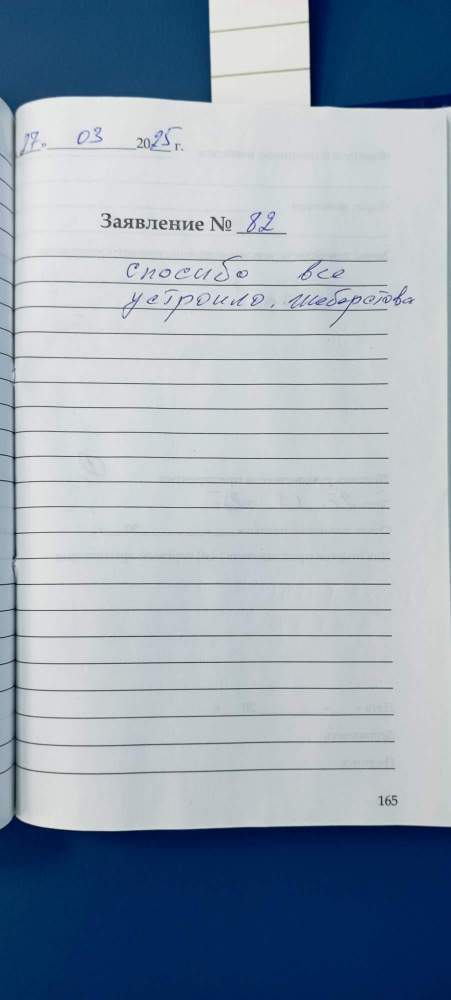 27 » 03 2025 г.
Заявление № 82
спосибо все
устроило.
165